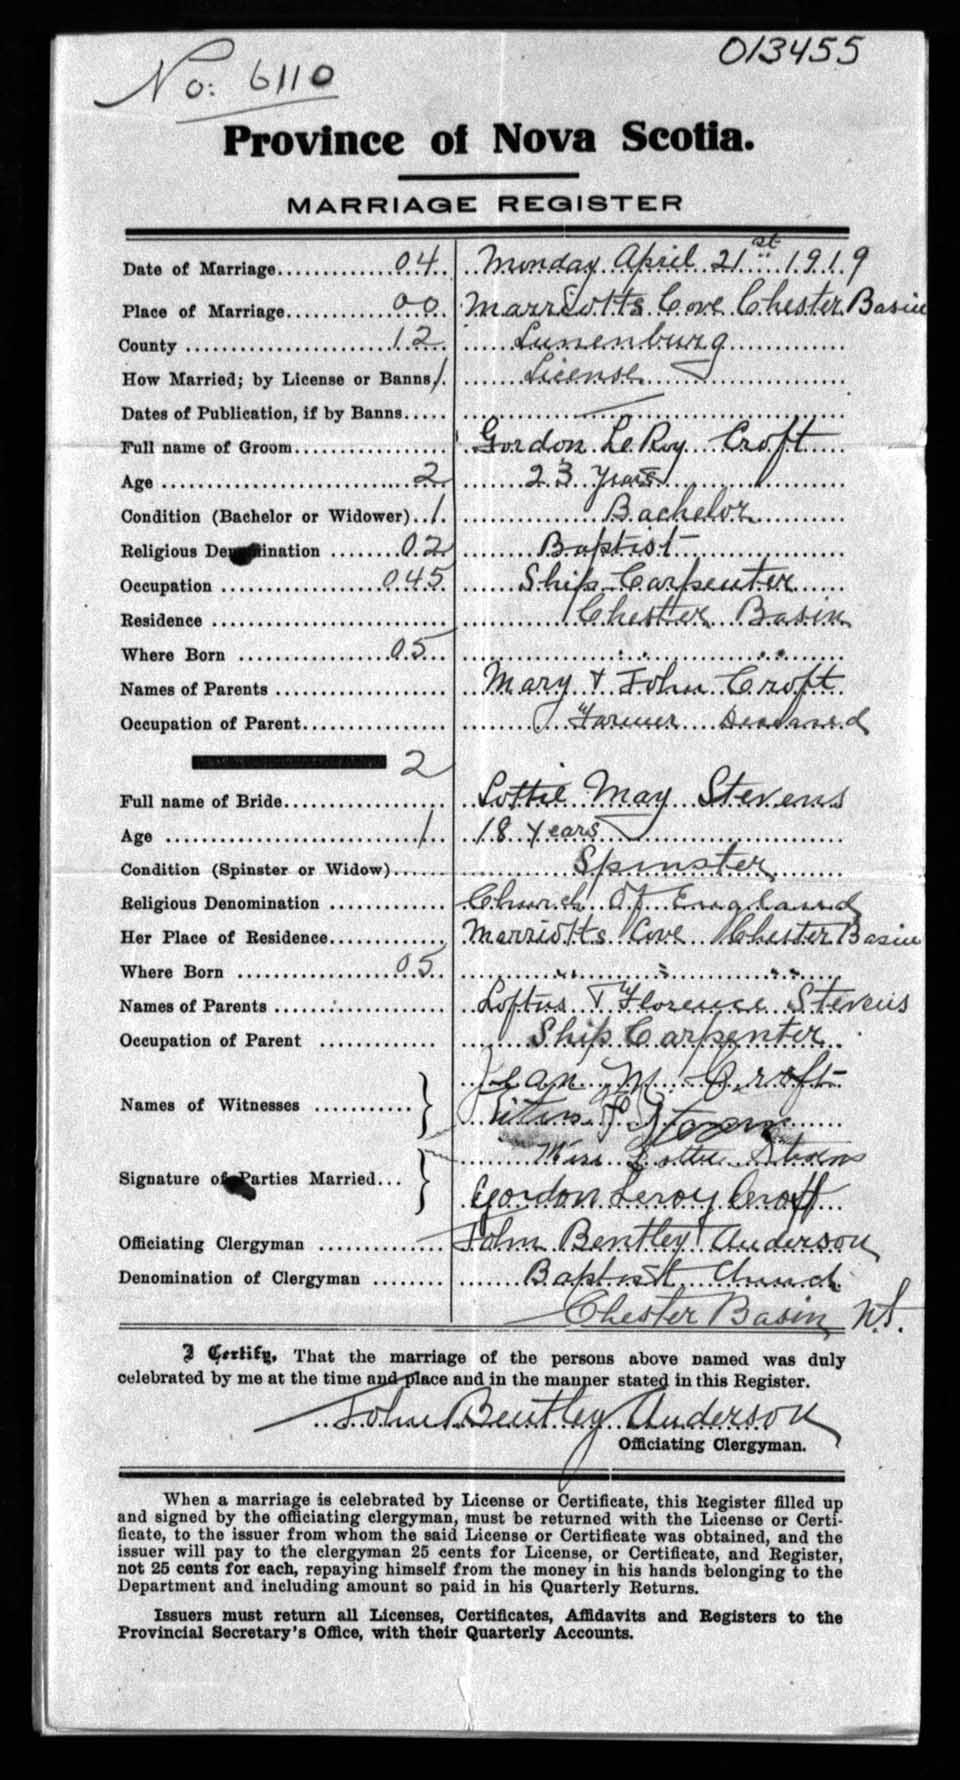 No: 6110
013455
Province of Nova Scotia.
MARRIAGE REGISTER
Date of Marriage 04 Monday April 21st 1919
Place of Marriage 00 Marriotts Cove Chester Basin
County 12 Lunenburg
How Married; by License or Banns 1 License
Dates of Publication, if by Banns
Full name of Groom Gordon LeRoy Croft
Age 2 23 years
Condition (Bachelor or Widower) 1 Bachelor
Religious Denomination 02 Baptist
Occupation 045 Ship Carpenter
Residence Chester Basin
Where Born 05 " "
Names of Parents Mary & John Croft
Occupation of Parent Farmer Deceased
2
Full name of Bride Lottie May Stevens
Age 1 18 years
Condition (Spinster or Widow) Spinster
Religious Denomination Church Of England
Her Place of Residence Marriotts Cove Chester Basin
Where Born 05 " " "
Names of Parents Loftus & Florence Stevens
Occupation of Parent Ship Carpenter
Jean M. Croft
Names of Witnesses
Miss Lottie Stevens
Signature of Parties Married
Gordon Leroy Croft
Officiating Clergyman John Bentley Anderson
Denomination of Clergyman Baptist Church
Chester Basin N.S.
I Certify, That the marriage of the persons above named was duly
celebrated by me at the time and place and in the manner stated in this Register.
John Bentley Anderson
Officiating Clergyman.
When a marriage is celebrated by License or Certificate, this Register filled up
and signed by the officiating clergyman, must be returned with the License or Certi-
ficate, to the issuer from whom the said License or Certificate was obtained, and the
issuer will pay to the clergyman 25 cents for License, or Certificate, and Register,
not 25 cents for each, repaying himself from the money in his hands belonging to the
Department and including amount so paid in his Quarterly Returns.
Issuers must return all Licenses, Certificates, Affidavits and Registers to the
Provincial Secretary's Office, with their Quarterly Accounts.